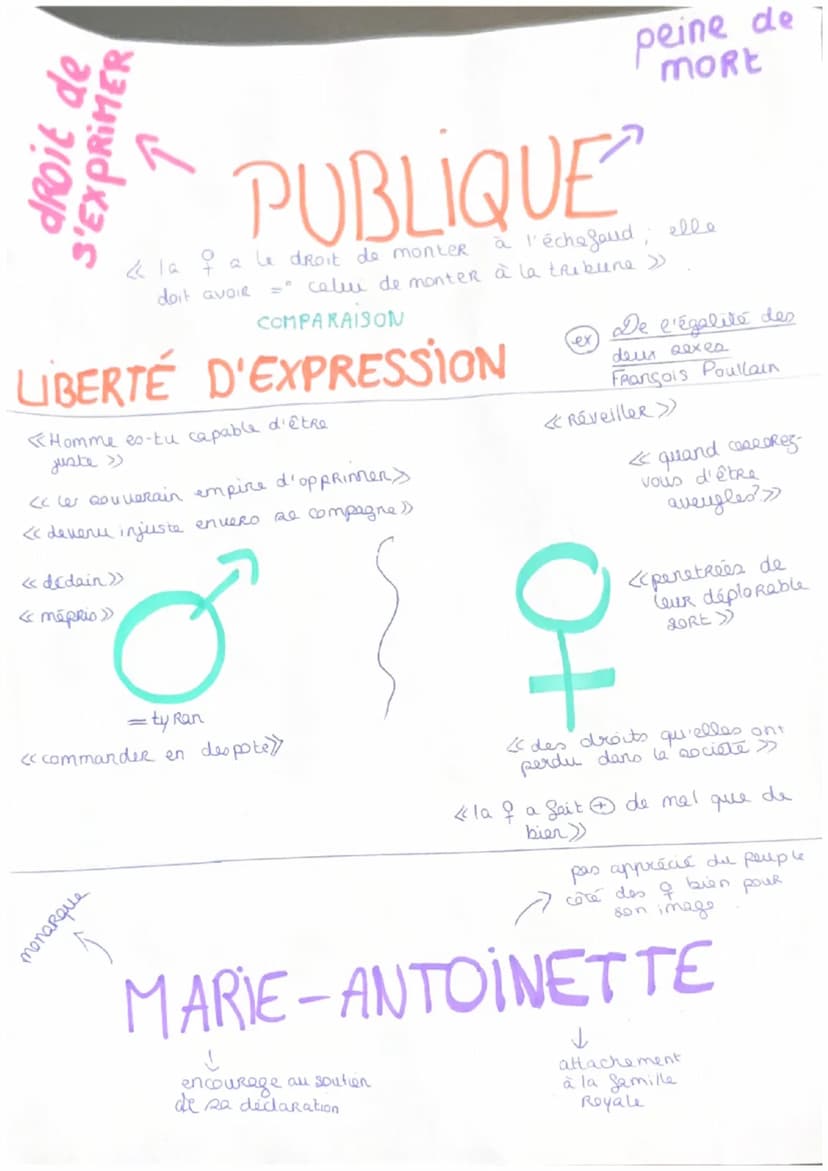 droit de
s'exprimer
peine de
mort
PUBLIQUE
« la ♀ a le droit de monter à l'échafaud ; elle
doit avoir =" celui de monter à la tribune »
COMPARAISON
LIBERTÉ D'EXPRESSION
ex De l'égalité des
deux sexes
François Poullain
« Homme es-tu capable d'être
juste »
« les souverain empire d'opprimer »
« devenu injuste envers sa compagne »
« dédain »
« mépris »
= tyran
« commander en despote »
« Réveiller »
« quand cesserez-
vous d'être
aveugles? »
« penetrées de
leur déplorable
sort »
« des droits qu'elles ont
perdu dans la société »
« la ♀ a fait ⊕ de mal que de
bien »
monarque
pas apprécié du peuple
côté des ♀ bien pour
son image
MARIE-ANTOINETTE
encourage au soutien
de sa déclaration
attachement
à la famille
Royale